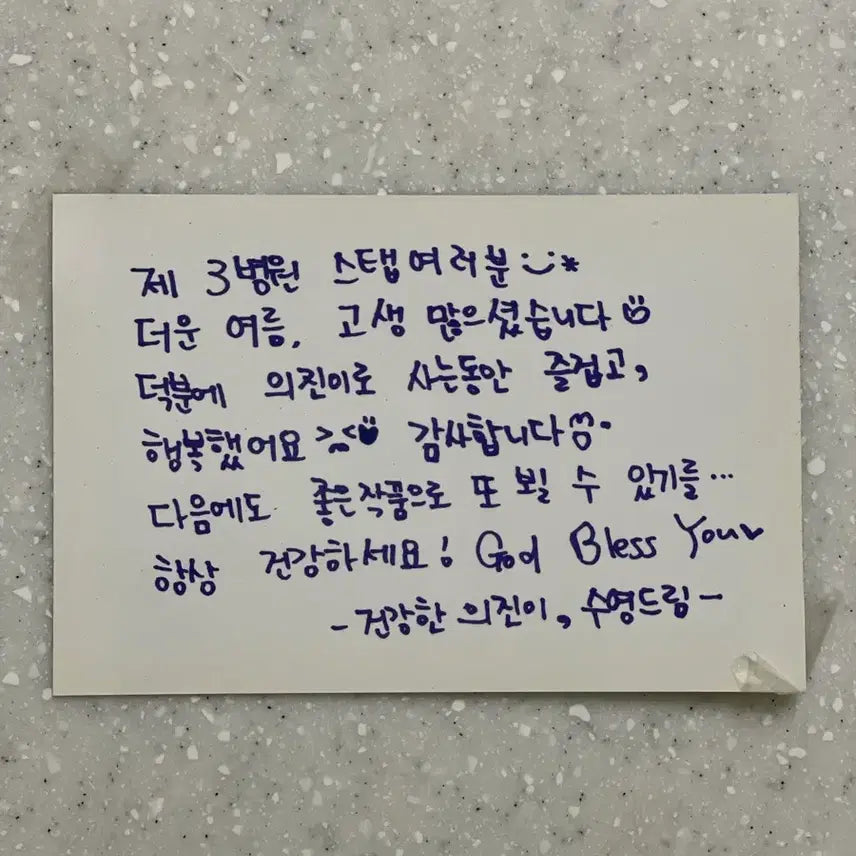 제 3병원 스탭여러분
더운 여름, 고생 많으셨습니다
덕분에 의진이로 사는동안 즐겁고,
행복했어요 감사합니다
다음에도 좋은작품으로 또 뵐 수 있기를...
항상 건강하세요! God Bless You
- 건강한 의진이, 수영드림 -